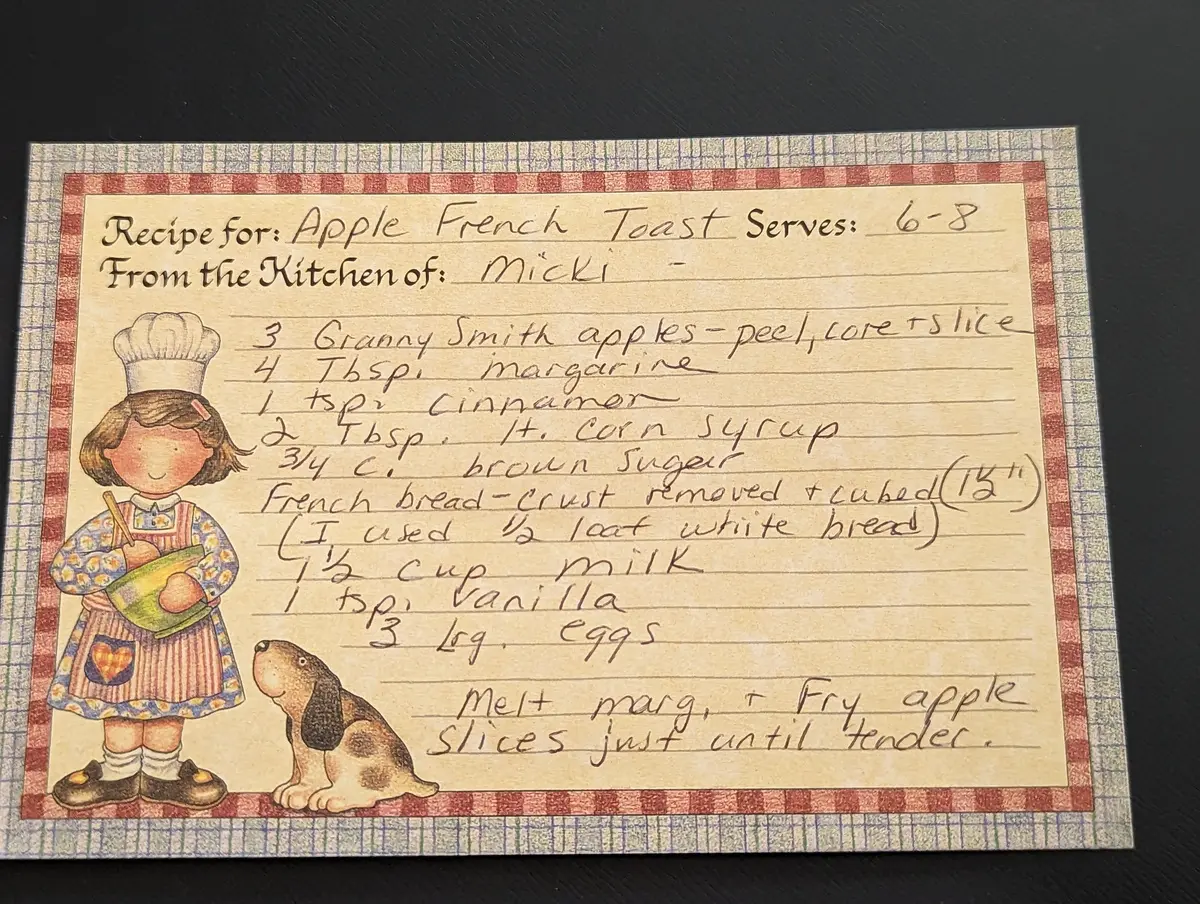 Recipe for: Apple French Toast Serves: 6-8
From the Kitchen of: Micki -
3 Granny Smith apples - peel, core + slice
4 Tbsp. margarine
1 tsp. cinnamon
2 Tbsp. lt. corn syrup
3/4 c. brown sugar
French bread - crust removed + cubed (1½")
(I used ½ loaf whiite bread)
1½ cup milk
1 tsp. vanilla
3 Lrg. eggs
Melt marg. + Fry apple
slices just until tender.